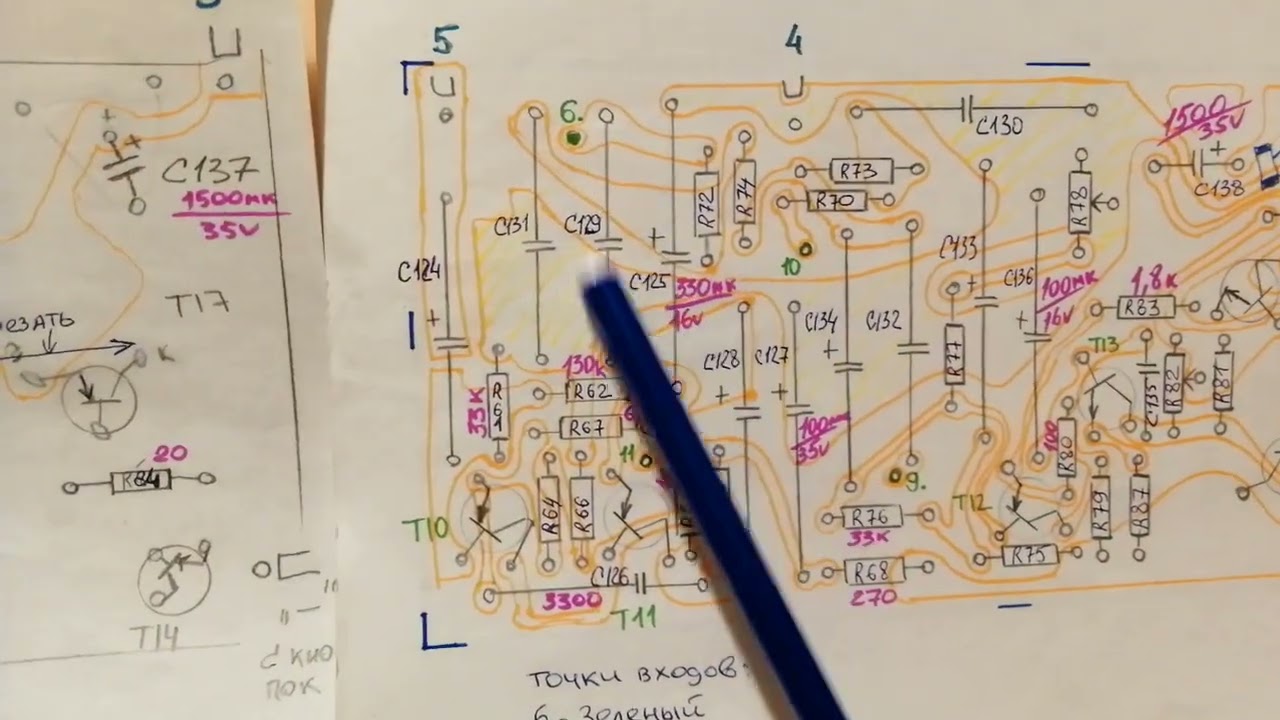 5
4
6.
1500
35V
C130
C137
1500мк
35V
R73
R70
R72
R74
R78
C138
C131
C129
C124
C125
330мк
16V
10
C133
C136
100мк
16V
1,8к
R83
T17
C134
C132
C128
C127
R77
T13
C135
R82
R81
130к
R62
33к
R61
R67
100мк
35V
100
R80
11
9.
20
R84
T10
R64
R66
R76
33к
T12
R79
R87
R75
C126
3300
R68
270
T11
T14
"
"
с кно
пок
точки входов:
6 - Зеленый